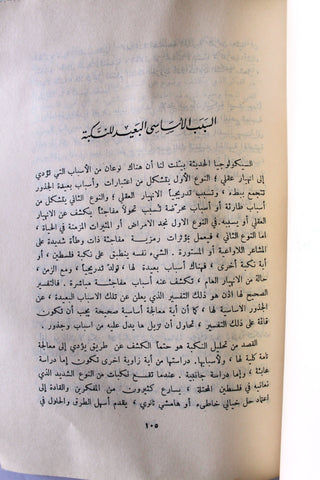 السبب الأساسي البعيد للنكبة
السيكولوجيا الحديثة بيّنت لنا أن هناك نوعان من الأسباب التي تؤدي
إلى انهيار عقلي ، النوع الأول يتشكل من اعتبارات وأسباب بعيدة الجذور
تتجمع ببطء ، وتسبب تدريجياً الانهيار العقلي ، والنوع الثاني يتشكل من
أسباب طارئة أو أسباب محرّضة تسبب تحولاً مفاجئاً يكشف عن الانهيار
العقلي أو يسببه . في النوع الاول نجد الامراض أو المؤثرات المزمنة في الحياة ،
أما النوع الثاني ، فيعمل بمؤثرات رمزية مفاجئة ذات وطأة شديدة على
المشاعر اللاواعية أو المستورة . الشيء نفسه ينطبق على نكبة فلسطين ، أو
أية نكبة أخرى ، فهناك أسباب بعيدة لها ، تولد تدريجياً ، ومع الزمن ،
حالة من الانهيار العام ، تكشف عنه أسباب مفاجئة مباشرة . فالتفسير
الصحيح لها اذن هو ذلك التفسير الذي يعلن عن تلك الأسباب البعيدة ، عن
الجذور الاساسية لها ، كما أن أية معالجة أساسية صحيحة يجب أن تكون
قائمة على ذلك التفسير ، تحاول أن تزيل ما يدل عليه من اسباب وجذور .
القصد من تحليل النكبة هو حتماً الكشف عن طريق يؤدي إلى معالجة
تامة كلية لها ، ولأسبابها . دراستها من أية زاوية اخرى تكون إما دراسة
عابثة ، وإما دراسة جانبية . عندما تقع نكبات من النوع الشديد الذي
نعانيه في فلسطين المحتلة ، يسارع كثيرون من المفكرين والقادة إلى
اعتماد حل خيالي خاطىء أو هامشي ثانوي ، يقدم أسهل الطرق والحلول في
١٠٥